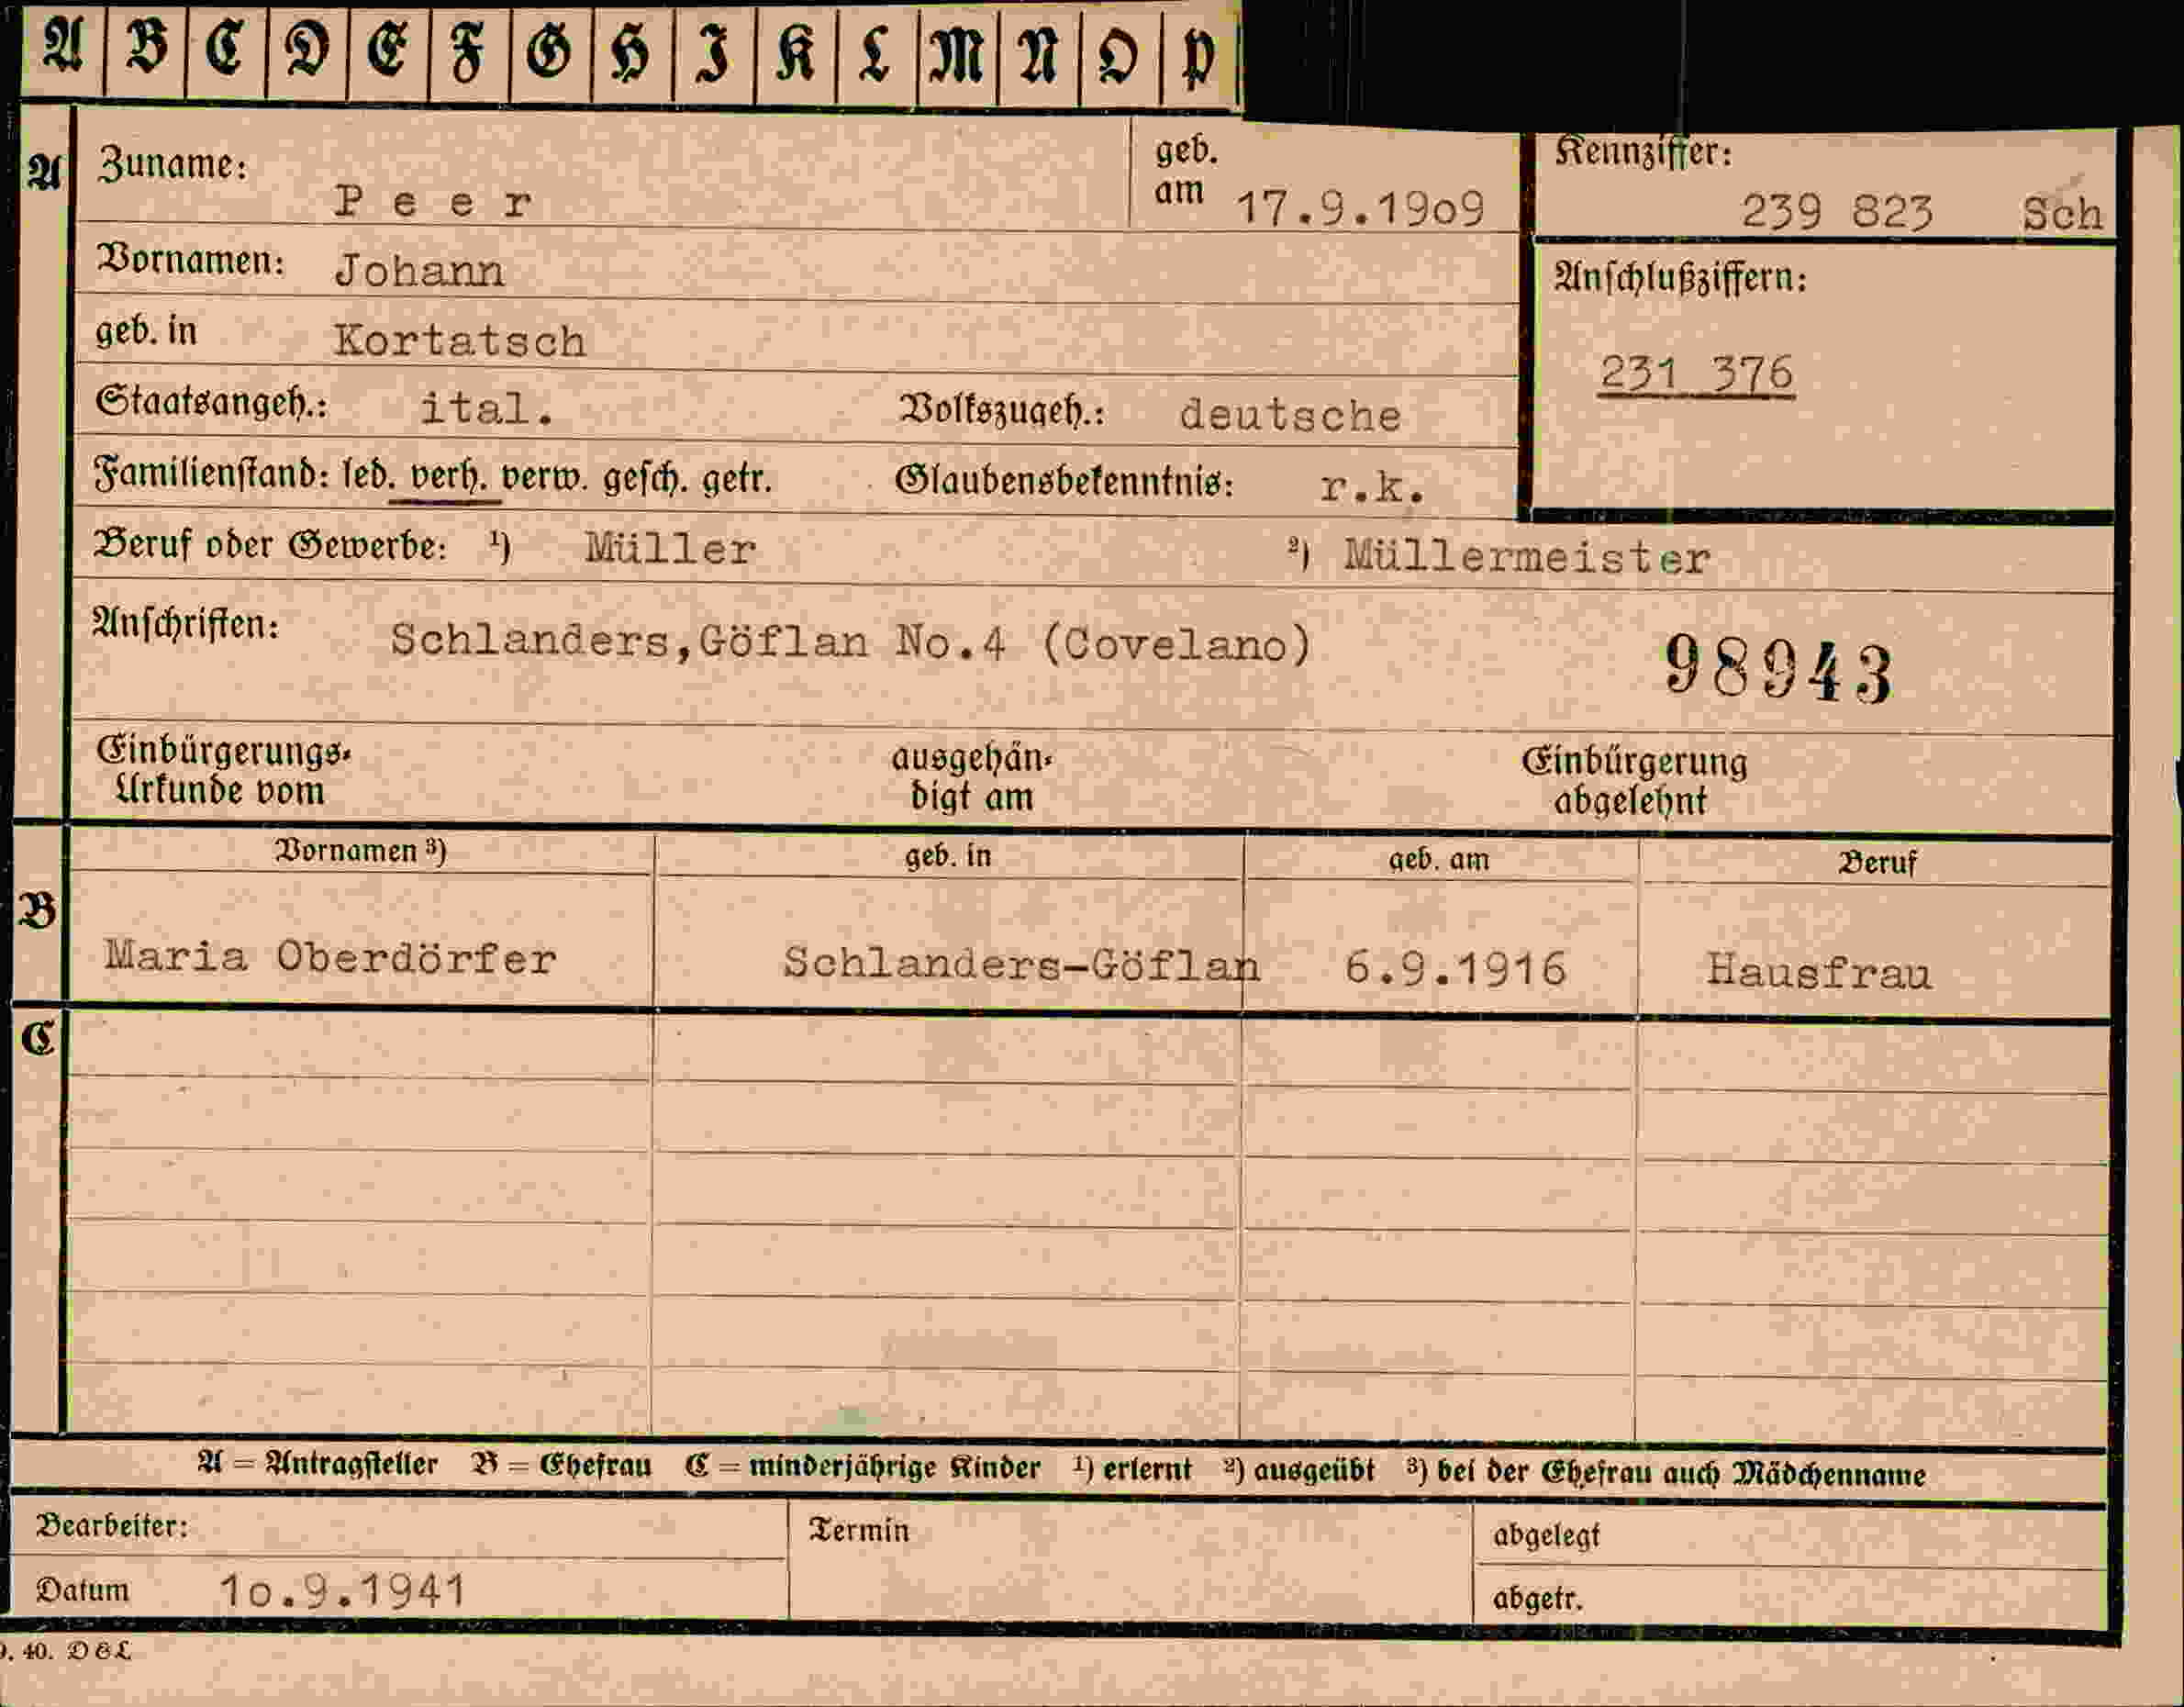 A B C D E F G H I K L M N O P
A Zuname: P e e r geb. am 17.9.1909 Kennziffer: 239 823 Sch
Vornamen: Johann
Anschlußziffern:
geb. in Kortatsch
231 376
Staatsangeh.: ital. Volkszugeh.: deutsche
Familienstand: led. verh. verw. gesch. getr. Glaubensbekenntnis: r.k.
Beruf oder Gewerbe: ¹) Müller ²) Müllermeister
Anschriften: Schlanders,Göflan No.4 (Covelano) 98943
Einbürgerungs- ausgehän- Einbürgerung
Urkunde vom digt am abgelehnt
Vornamen ³) geb. in geb. am Beruf
B
Maria Oberdörfer Schlanders-Göflan 6.9.1916 Hausfrau
C
A = Antragsteller B = Ehefrau C = minderjährige Kinder ¹) erlernt ²) ausgeübt ³) bei der Ehefrau auch Mädchenname
Bearbeiter: Termin abgelegt
Datum 1o.9.1941 abgetr.
40. DEL